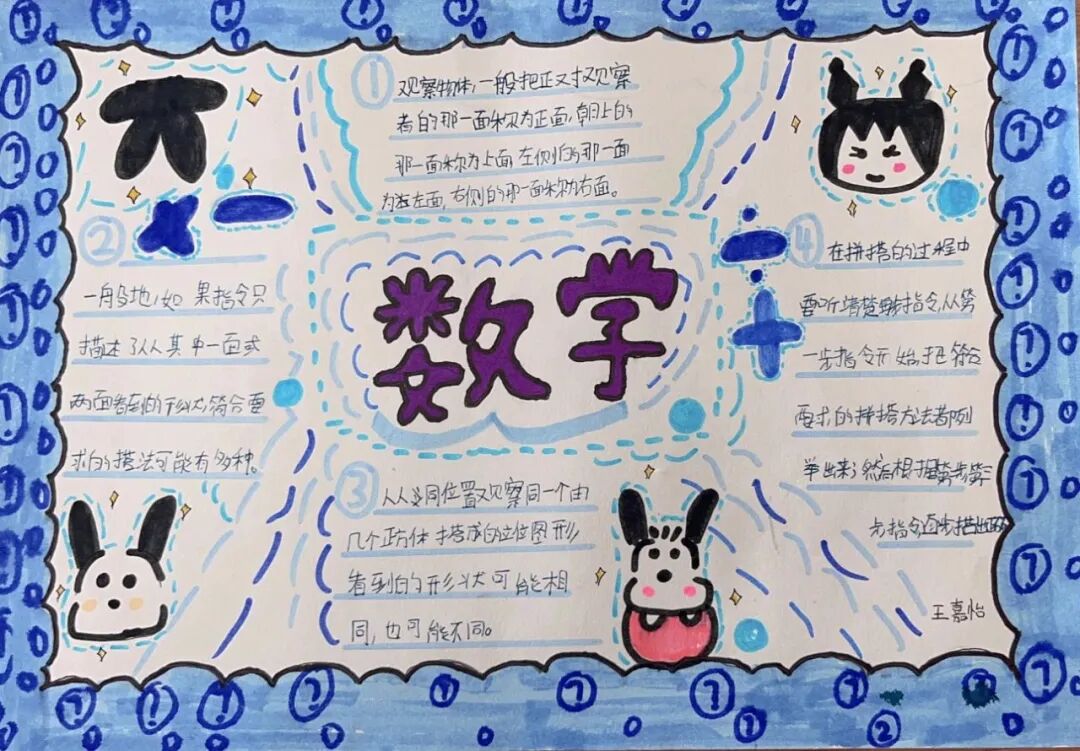 ①
观察物体,一般把正对观察
者的那一面称为正面,朝上的
那一面称为上面,左侧的那一面
为左面,右侧的那一面称为右面。
π
× −
②
一般地,如果指令只
描述了从其中一面或
两面看到的形状,符合要
求的搭法可能有多种。
数学
③
从不同位置观察同一个由
几个正方体搭成的立体图形
看到的形状可能相
同,也可能不同。
÷
+
④
在拼搭的过程中
要听清楚指令,从第
一步指令开始,把符合
要求的拼搭方法都列
举出来,然后根据第三
步指令
王嘉怡